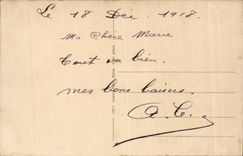 Le 18 Déc 1918.
Ma Chère Marie
Tout va bien.
mes bons baisers.